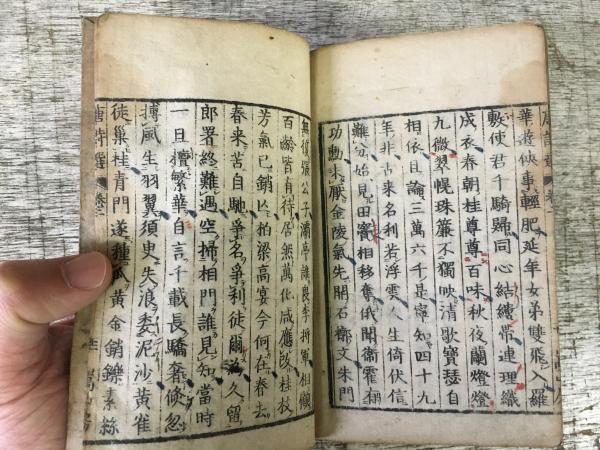 華遊俠事輕肥延年女弟雙飛入羅
敷使君千騎歸同心結縷帶連理織
成衣春朝桂尊尊百味秋夜蘭燈燈
九微翠幌珠簾不獨映清歌寶瑟自
相依且論三萬六千是寧知四十九
年非古來名利若浮雲人生倚伏信
難分始見田竇相移奪俄聞衛霍有
功勳未厭金陵氣先開石槨文朱門
無復張公子灞亭誰畏李將軍相顧
百齡皆有待居然萬化咸應改桂枝
芳氣已銷亡柏梁高宴今何在春去
春來苦自馳爭名爭利徒爾為久留
郎署終難遇空掃相門誰見知當時
一旦擅繁華自言千載長驕奢倏忽
摶風生羽翼須臾失浪委泥沙黃雀
徒巢桂青門遂種瓜黃金銷鑠素絲
唐詩選 卷二